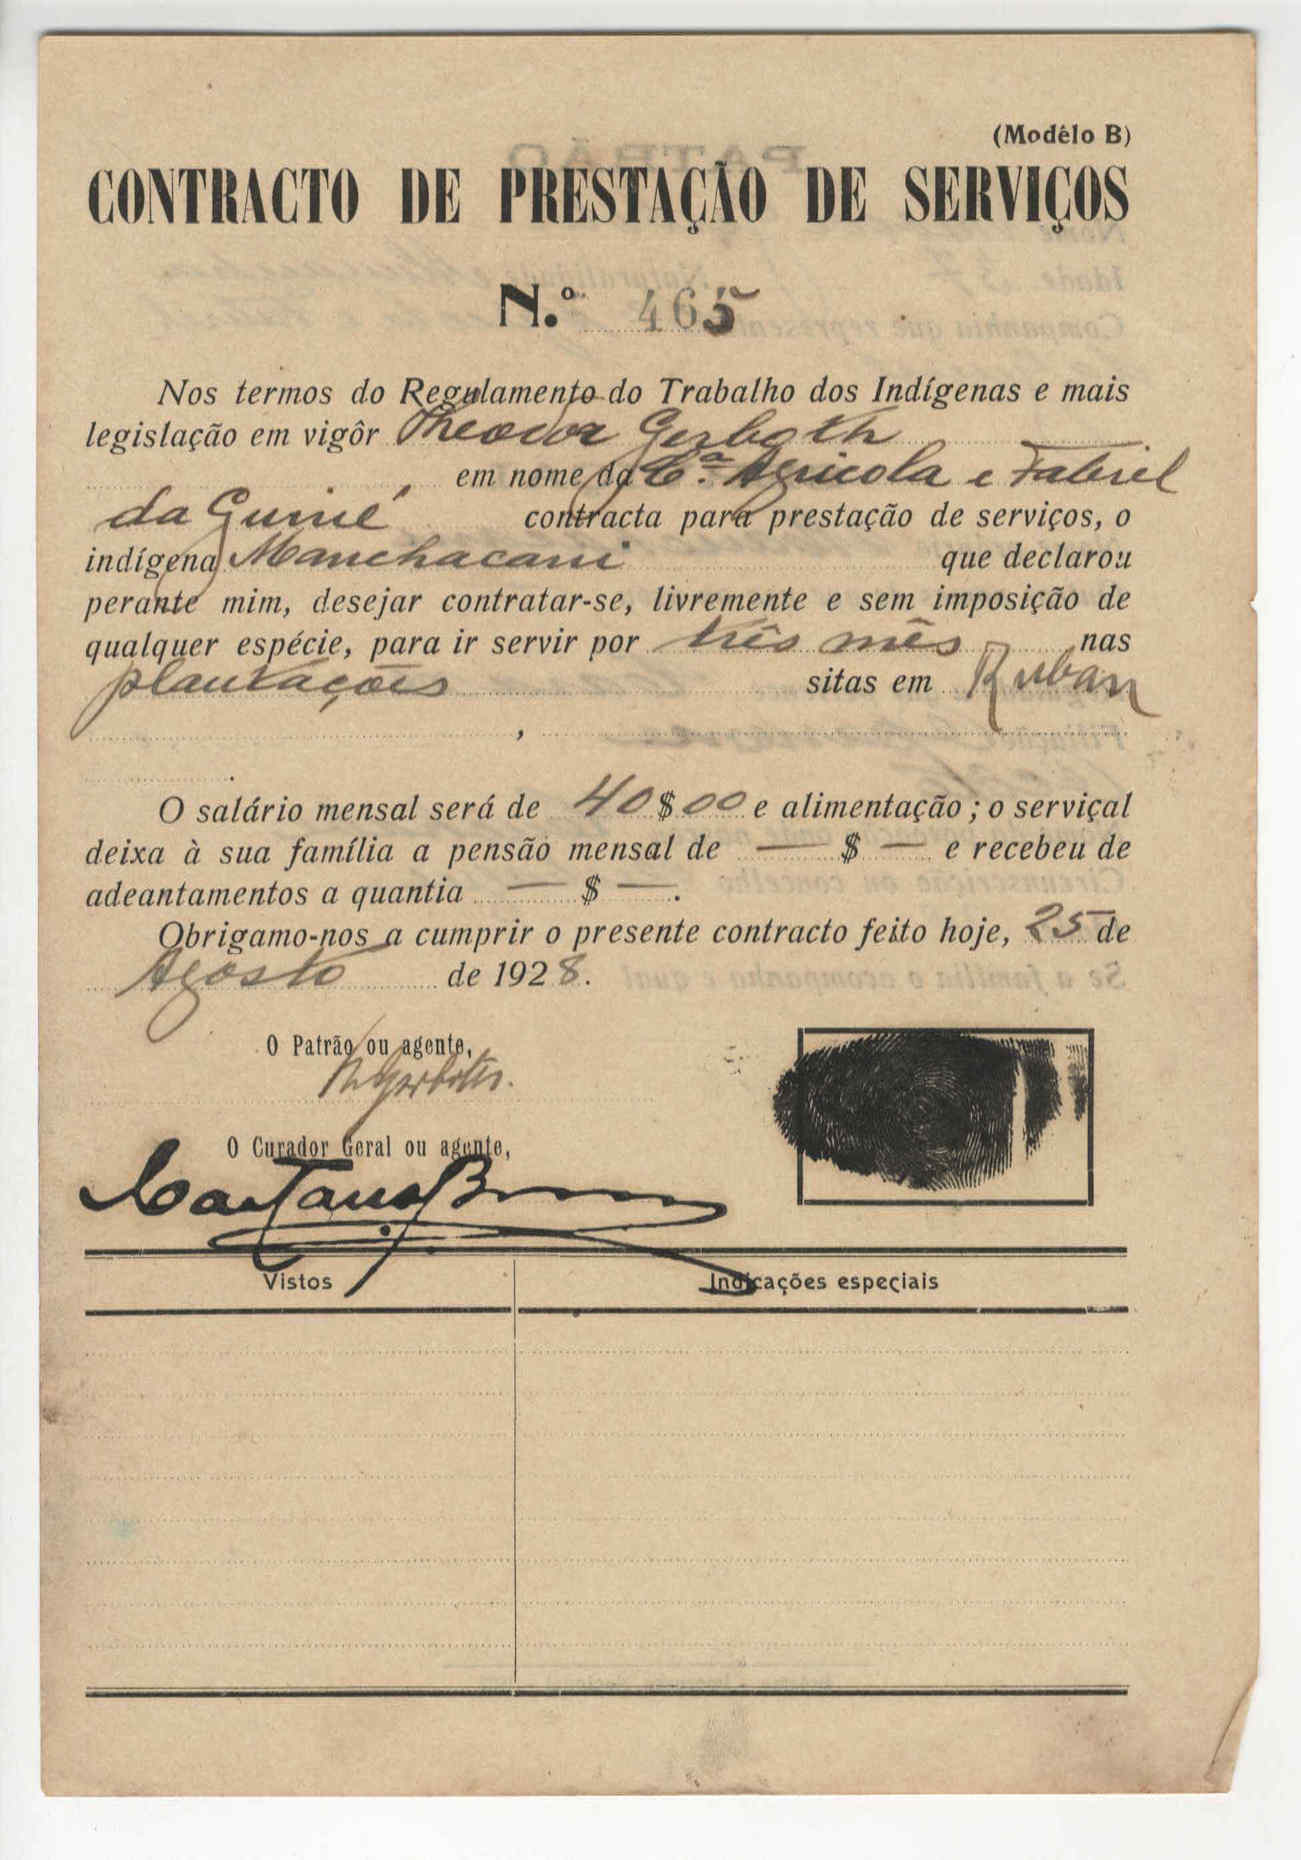 (Modêlo B)
CONTRACTO DE PRESTAÇÃO DE SERVIÇOS
N.º 465
Nos termos do Regulamento do Trabalho dos Indígenas e mais
legislação em vigôr Theodor Gerboth
em nome da C.ª Agricola e Fabril
da Guiné contracta para prestação de serviços, o
indígena Manchacani que declarou
perante mim, desejar contratar-se, livremente e sem imposição de
qualquer espécie, para ir servir por três mês nas
plantações sitas em Ruban
,
.
O salário mensal será de 40$00 e alimentação; o serviçal
deixa à sua família a pensão mensal de — $ — e recebeu de
adeantamentos a quantia — $ — .
Obrigamo-nos a cumprir o presente contracto feito hoje, 25 de
Agosto de 1928.
O Patrão ou agente,
Gerboth.
O Curador Geral ou agente,
Caetano
Vistos Indicações especiais